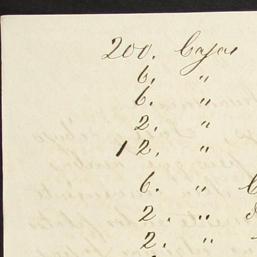 200. Cajas
6. "
6. "
2. "
12. "
6. "
2. "
2. "